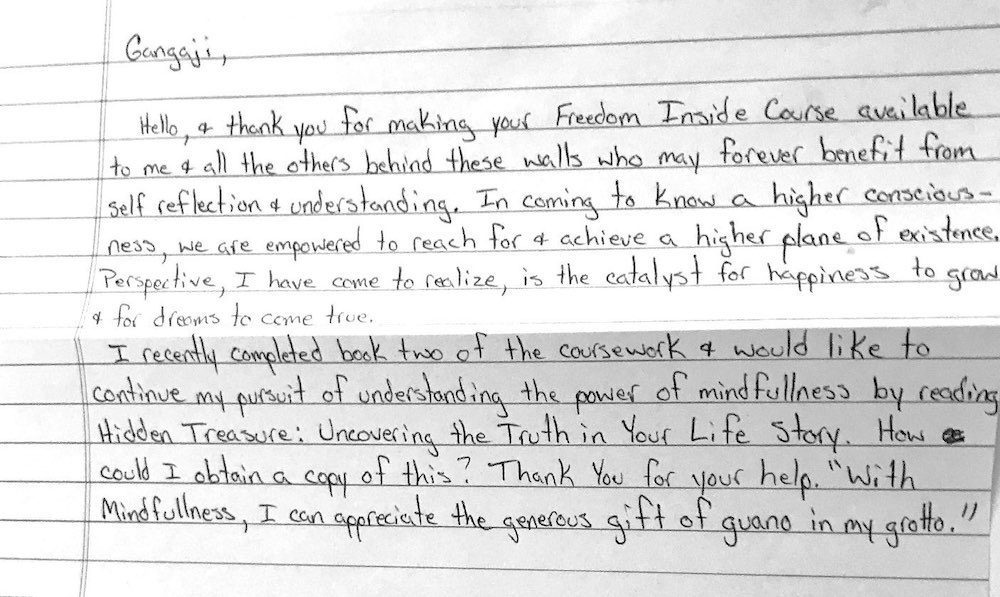 Gangaji,
Hello, & thank you for making your Freedom Inside Course available
to me & all the others behind these walls who may forever benefit from
self reflection & understanding. In coming to know a higher conscious-
ness, we are empowered to reach for & achieve a higher plane of existence.
Perspective, I have come to realize, is the catalyst for happiness to grow
& for dreams to come true.
I recently completed book two of the coursework & would like to
continue my pursuit of understanding the power of mindfullness by reading
Hidden Treasure: Uncovering the Truth in Your Life Story. How
could I obtain a copy of this? Thank You for your help. "With
Mindfullness, I can appreciate the generous gift of guano in my grotto."